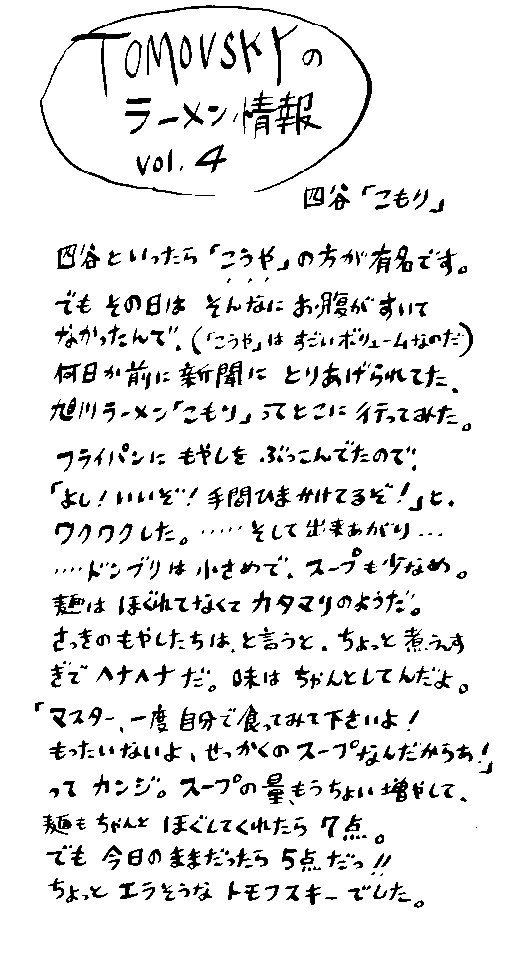 TOMOVSKYの
ラーメン情報
vol. 4
四谷「こもり」
四谷といったら「こうや」の方が有名です。
でも その日は そんなに お腹がすいて
なかったんで、(「こうや」は すごいボリュームなのだ)
何日か前に 新聞に とりあげられてた、
旭川ラーメン「こもり」ってとこに 行ってみた。
フライパンに もやしを ぶっこんでたので、
「よし!いいぞ!手間ひまかけてるぞ!」と、
ワクワクした。……そして出来あがり…
‥‥ドンブリは 小さめで、スープも少なめ。
麺は ほぐれてなくて カタマリのようだ。
さっきのもやしたちは、と言うと、ちょっと煮えす
ぎで ヘナヘナだ。味は ちゃんとしてんだよ。
「マスター、一度 自分で食ってみて下さいよ!
もったいないよ、せっかくの スープなんだからぁ!」
って カンジ。スープの量、もうちょい増やして、
麺も ちゃんと ほぐしてくれたら 7点。
でも 今日のままだったら 5点だっ!!
ちょっと エラそうな トモフスキーでした。